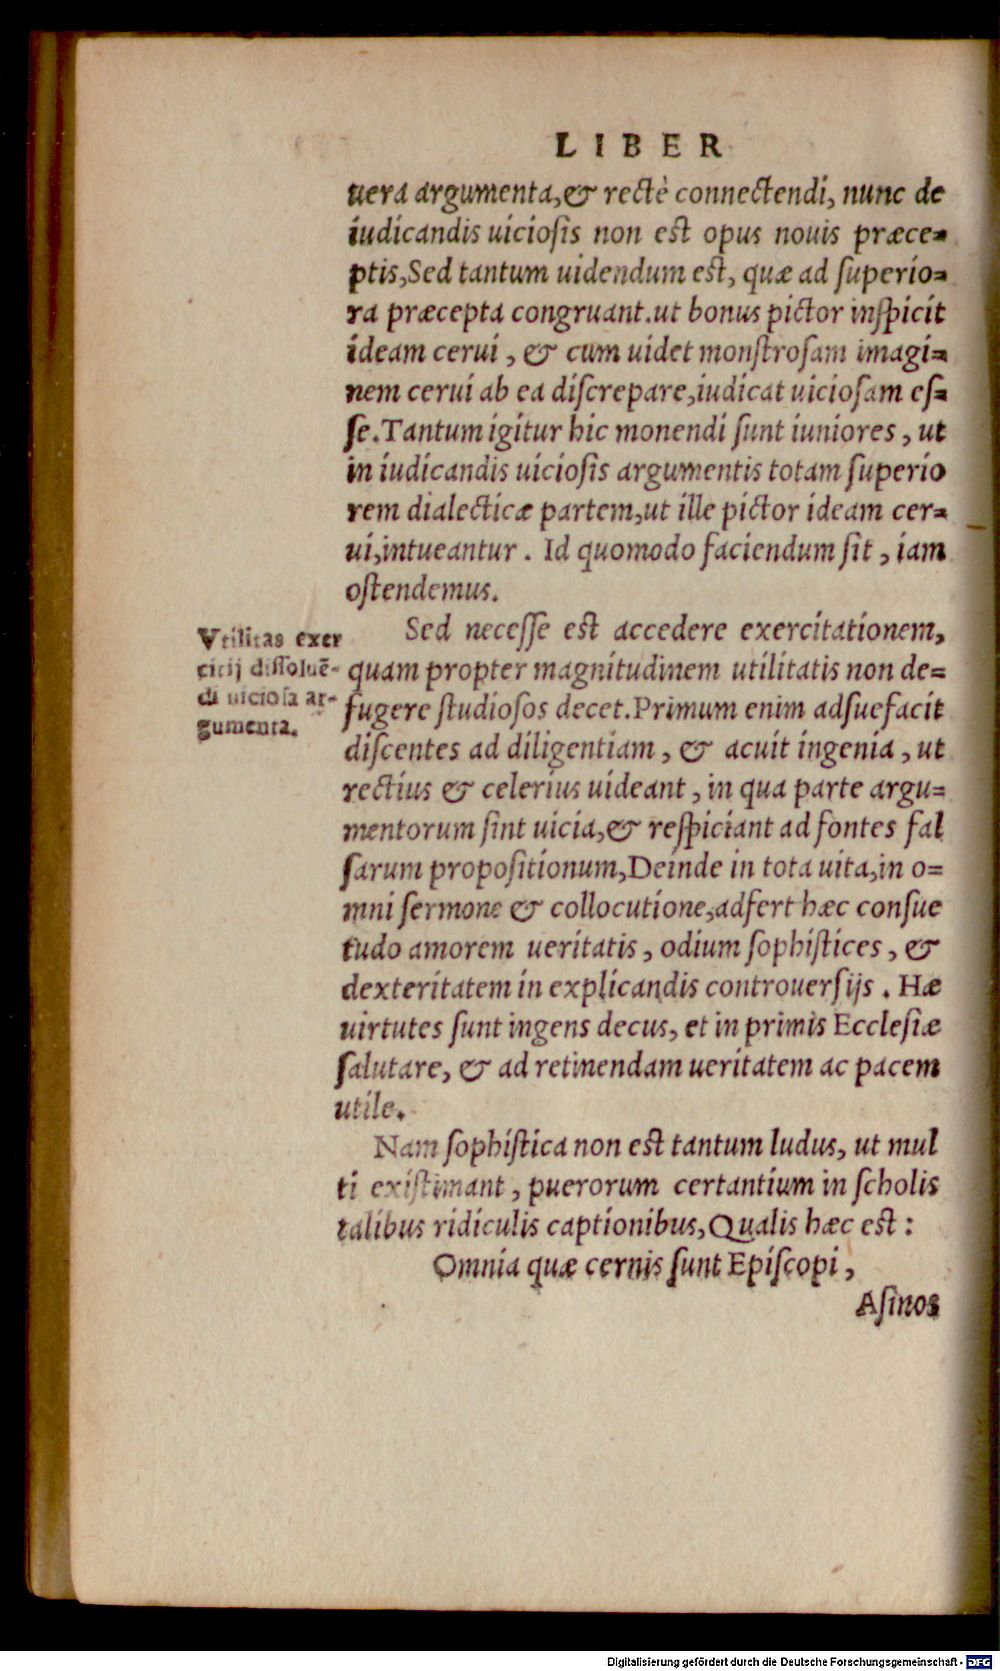 LIBER
uera argumenta,& rectè connectendi, nunc de
iudicandis uiciosis non est opus nouis præce=
ptis,Sed tantum uidendum est, quæ ad superio=
ra præcepta congruant.ut bonus pictor inspicit
ideam cerui, & cum uidet monstrosam imagi=
nem cerui ab ea discrepare,iudicat uiciosam es=
se.Tantum igitur hic monendi sunt iuniores, ut
in iudicandis uiciosis argumentis totam superio
rem dialecticæ partem,ut ille pictor ideam cer=
ui,intueantur. Id quomodo faciendum sit, iam
ostendemus.
Vtilitas exer
citij dissoluē-
di uiciosa ar-
gumenta.
Sed necesse est accedere exercitationem,
quam propter magnitudinem utilitatis non de=
fugere studiosos decet.Primum enim adsuefacit
discentes ad diligentiam, & acuit ingenia, ut
rectius & celerius uideant, in qua parte argu=
mentorum sint uicia,& respiciant ad fontes fal
sarum propositionum,Deinde in tota uita,in o=
mni sermone & collocutione,adfert hæc consue
tudo amorem ueritatis, odium sophistices, &
dexteritatem in explicandis controuersijs. Hæ
uirtutes sunt ingens decus, et in primis Ecclesiæ
salutare, & ad retinendam ueritatem ac pacem
utile.
Nam sophistica non est tantum ludus, ut mul
ti existimant, puerorum certantium in scholis
talibus ridiculis captionibus,Qualis hæc est:
Omnia quæ cernis sunt Episcopi,
Asinos
Digitalisierung gefördert durch die Deutsche Forschungsgemeinschaft - DFG